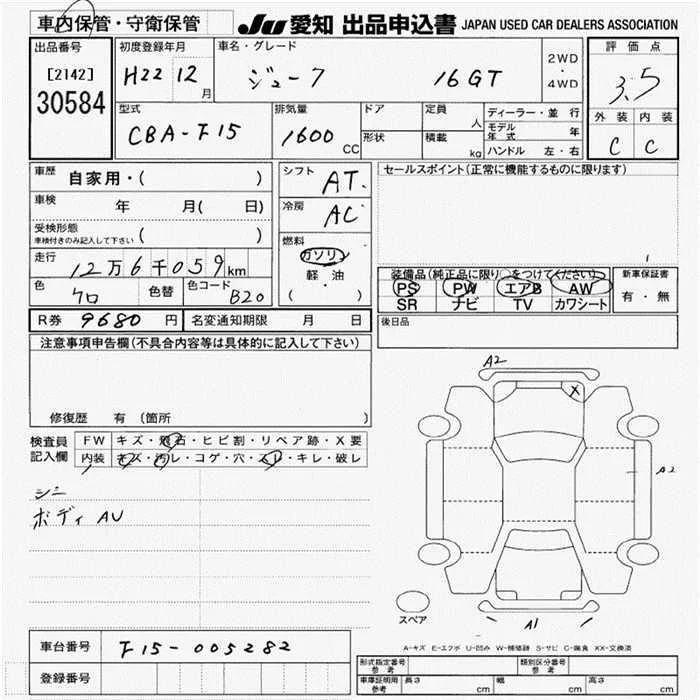 車内保管・守衛保管 JU 愛知 出品申込書 JAPAN USED CAR DEALERS ASSOCIATION
出品番号 初度登録年月 車名・グレード 2WD・4WD 評価点
[2142] 30584 H22 12月 ジューク 16GT 3.5
型式 排気量 ドア 定員 人 ディーラー・並行 外装 内装
CBA-F15 1600CC 形状 積載 kg モデル年式 年 C C
ハンドル 左・右
車歴 自家用・( ) シフト AT. セールスポイント(正常に機能するものに限ります)
車検 年 月( 日) 冷房 AC
受検形態 車検付きのみ記入して下さい ( ) 燃料 ガソリン
走行 12万6千059km 軽・油 ( ・ )
装備品(純正品に限り○をつけてください) 新車保証書
PS PW エアB AW 有・無
SR ナビ TV カワシート
色 クロ 色替 色コード B20
R券 9680円 名変通知期限 月 日 後日品
注意事項申告欄(不具合内容等は具体的に記入して下さい)
修復歴 有 (箇所 )
検査員記入欄 FW キズ・飛石・ヒビ割・リペア跡・X要
内装 キズ・汚レ・コゲ・穴・スレ・キレ・破レ
シニ
ボディ AU
A2
X
A2
A1
スペア
A-キズ E-エクボ U-凹み W-補修跡 S-サビ C-腐食 XX-交換済
車台番号 F15-005282
登録番号
型式指定番号 参考 類別区分番号 参考
車庫証明用 参考 長さ cm 幅 cm 高さ cm